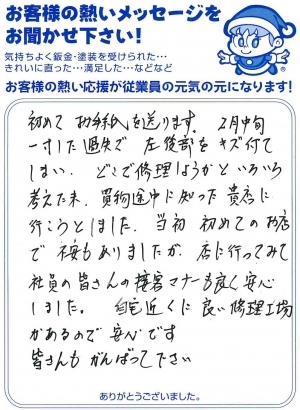 お客様の熱いメッセージを
お聞かせ下さい!
気持ちよく鈑金・塗装を受けられた…
きれいに直った…満足した…などなど
お客様の熱い応援が従業員の元気の元になります!
初めてお手紙を送ります。2月中旬
一寸した過失で 左後部をキズ付て
しまい、どこで修理しようかといろいろ
考えた末、買物途中に知った貴店に
行こうとしました。当初 初めてのお店
で 不安もありましたが、店に行ってみて
社員の皆さんの接客マナーも良く安心
しました。自宅近くに良い修理工場
があるので 安心です
皆さんも がんばって下さい
ありがとうございました。